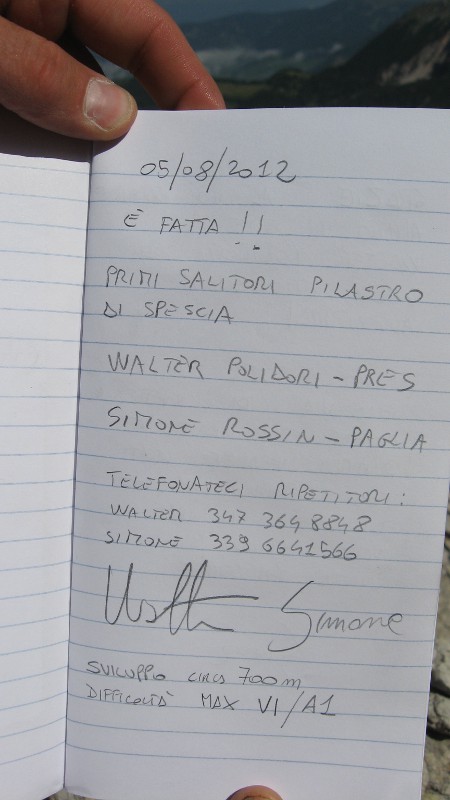 05/08/2012
È FATTA !!
PRIMI SALITORI PILASTRO
DI SPESCIA
WALTER POLIDORI - PRES
SIMONE ROSSIN - PAGLIA
TELEFONATECI RIPETITORI:
WALTER 347 364 8848
SIMONE 339 6641566
Walter Simone
SVILUPPO CIRCA 700m
DIFFICOLTÀ MAX VI/A1